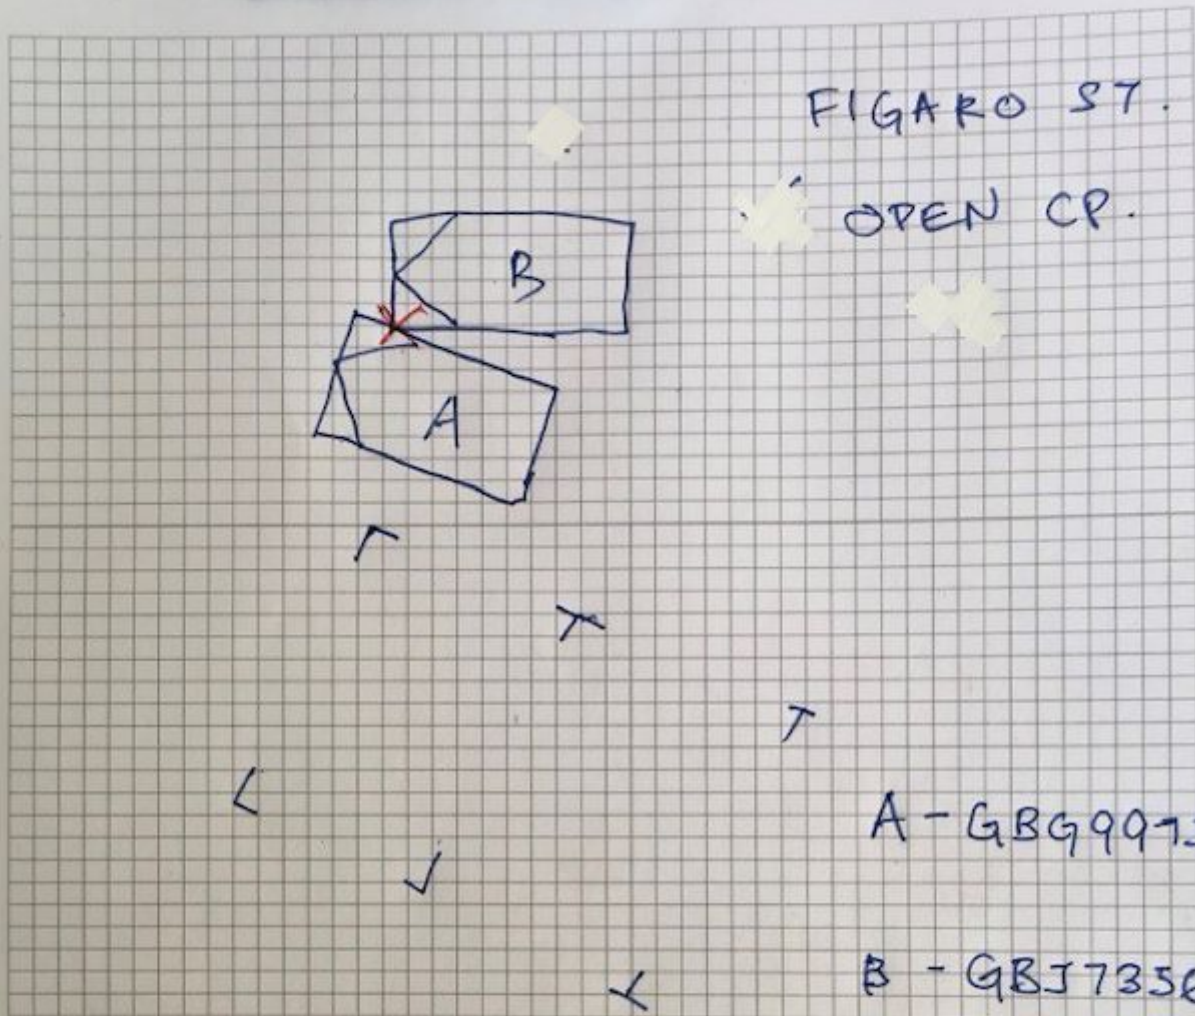 FIGARO ST.
OPEN CP.
B
A
A - GBG997
B - GBJ735